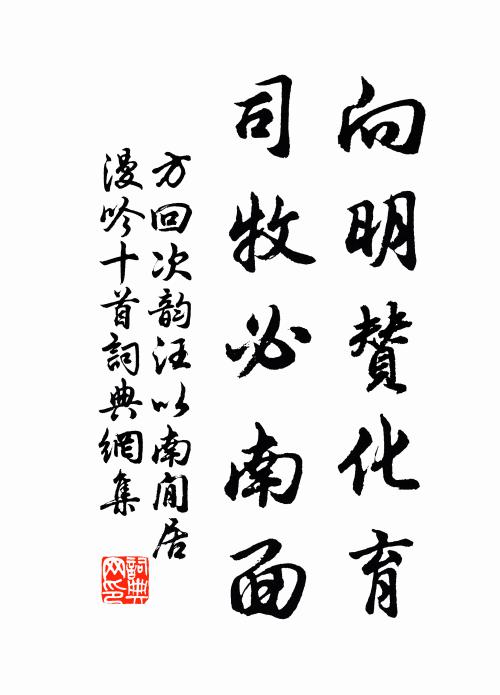 向明赞化育
司牧必南面
方回次韵汪以南闲居
漫吟十首詞典網集
詞典网印